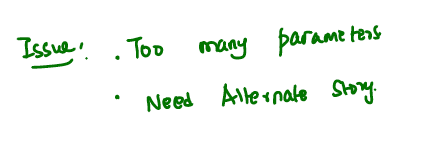 Issue: · Too many parameters
· Need Alternate Story.